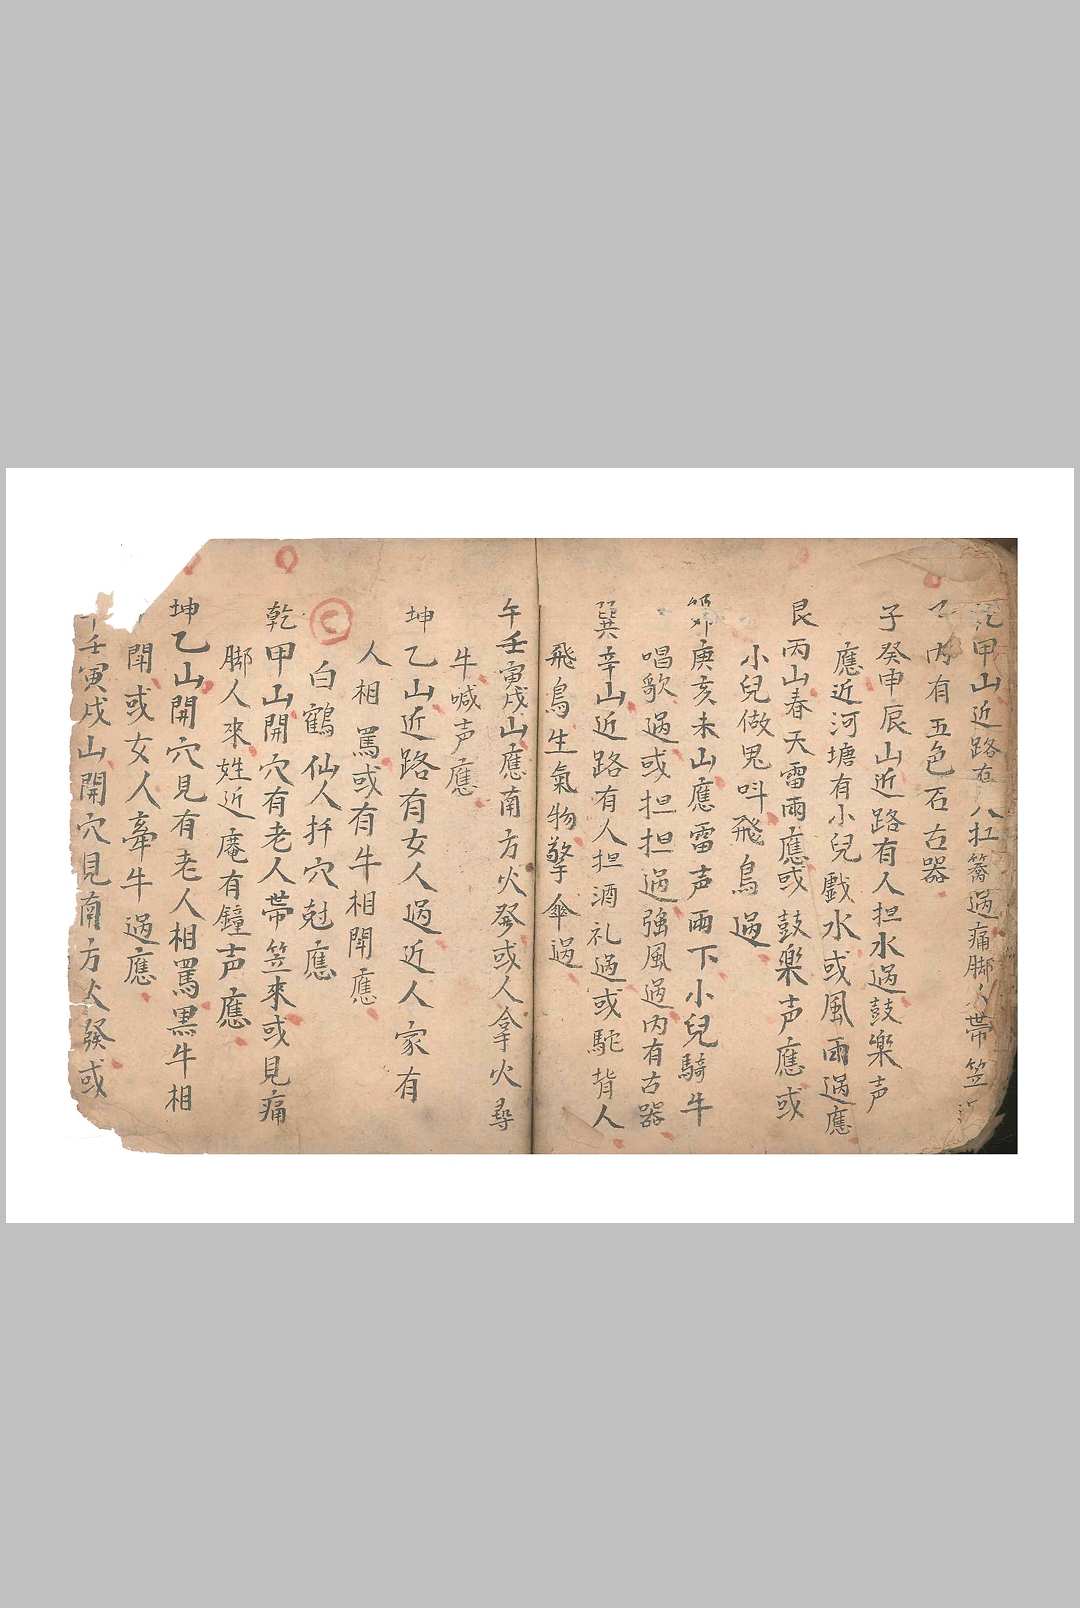 乾甲山近路有人扛簥過痛脚人帶笠
内有五色石古器
子癸申辰山近路有人担水過鼓樂声
應近河塘有小兒戲水或風雨過應
艮丙山春天雷雨應或鼓樂声應或
小兒做鬼呌飛鳥過
卯庚亥未山應雷声雨下小兒騎牛
唱歌過或担担過強風過内有古器
巽辛山近路有人担酒礼過或駝背人
飛鳥生氣物擎傘過
午壬寅戌山應南方火發或人拿火尋
牛喊声應
坤乙山近路有女人過近人家有
人相罵或有牛相鬪應
白鶴仙人扦穴尅應
乾甲山開穴有老人帶笠來或見痛
脚人來姓近庵有鐘声應
坤乙山開穴見有老人相罵黑牛相
鬪或女人牽牛過應
午壬寅戌山開穴見南方火發或